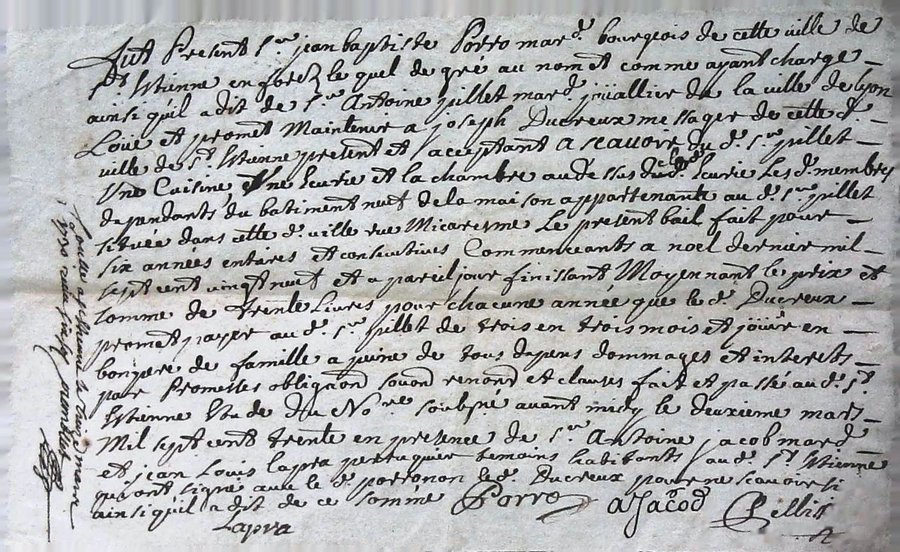 fut Present sr. jean baptiste Porro mard. bourgeois de cette ville de
st. Estienne en forez le quel de gré au nom et comme ayant charge
ainsi quil a dit de sr. Antoine jullet mard. joüallier de la ville de Lyon
Loüe et promet Maintenir a joseph Ducreux messager de cette d.
ville de st. Estienne present et acceptant a scauoir du d. sr. jullet
Une Cuisine, Une Ecurie et la chambre au dessus de Ecurie Les d. membres
dependants du batiment neuf de la maison appartenante au d. sr. jullet
situëe dans cette d. ville rue Micaresme Le present bail fait pour
six années entieres et consecutives Commenceants a noel dernier mil
sept cent vingt neuf et a pareil jour finissant Moyennant le prix et
somme de trente Livres pour chacune année que le d. Ducreux
promet payer au d. sr. jullet de trois en trois mois et joüir en
bon pere de famille a peine de tous depens dommages et interets
par Promesses obligaon soūon renonō et clauses fait et passé au d. st.
Estienne Etude du Nore. soubsné auant midy le deuxieme mars
Mil sept cent trente en presence de sr. Antoine jacob mard
et jean Louis lapra perruquier temoins habitants au d. st. Estienne
qui ont signés auec le d. porro non le d. Ducreux pour ne scauoir si
ainsi quil a dit de ce sommé
Porro
a Jacod
Lapra
Conllé a st Estienne le mars
1730